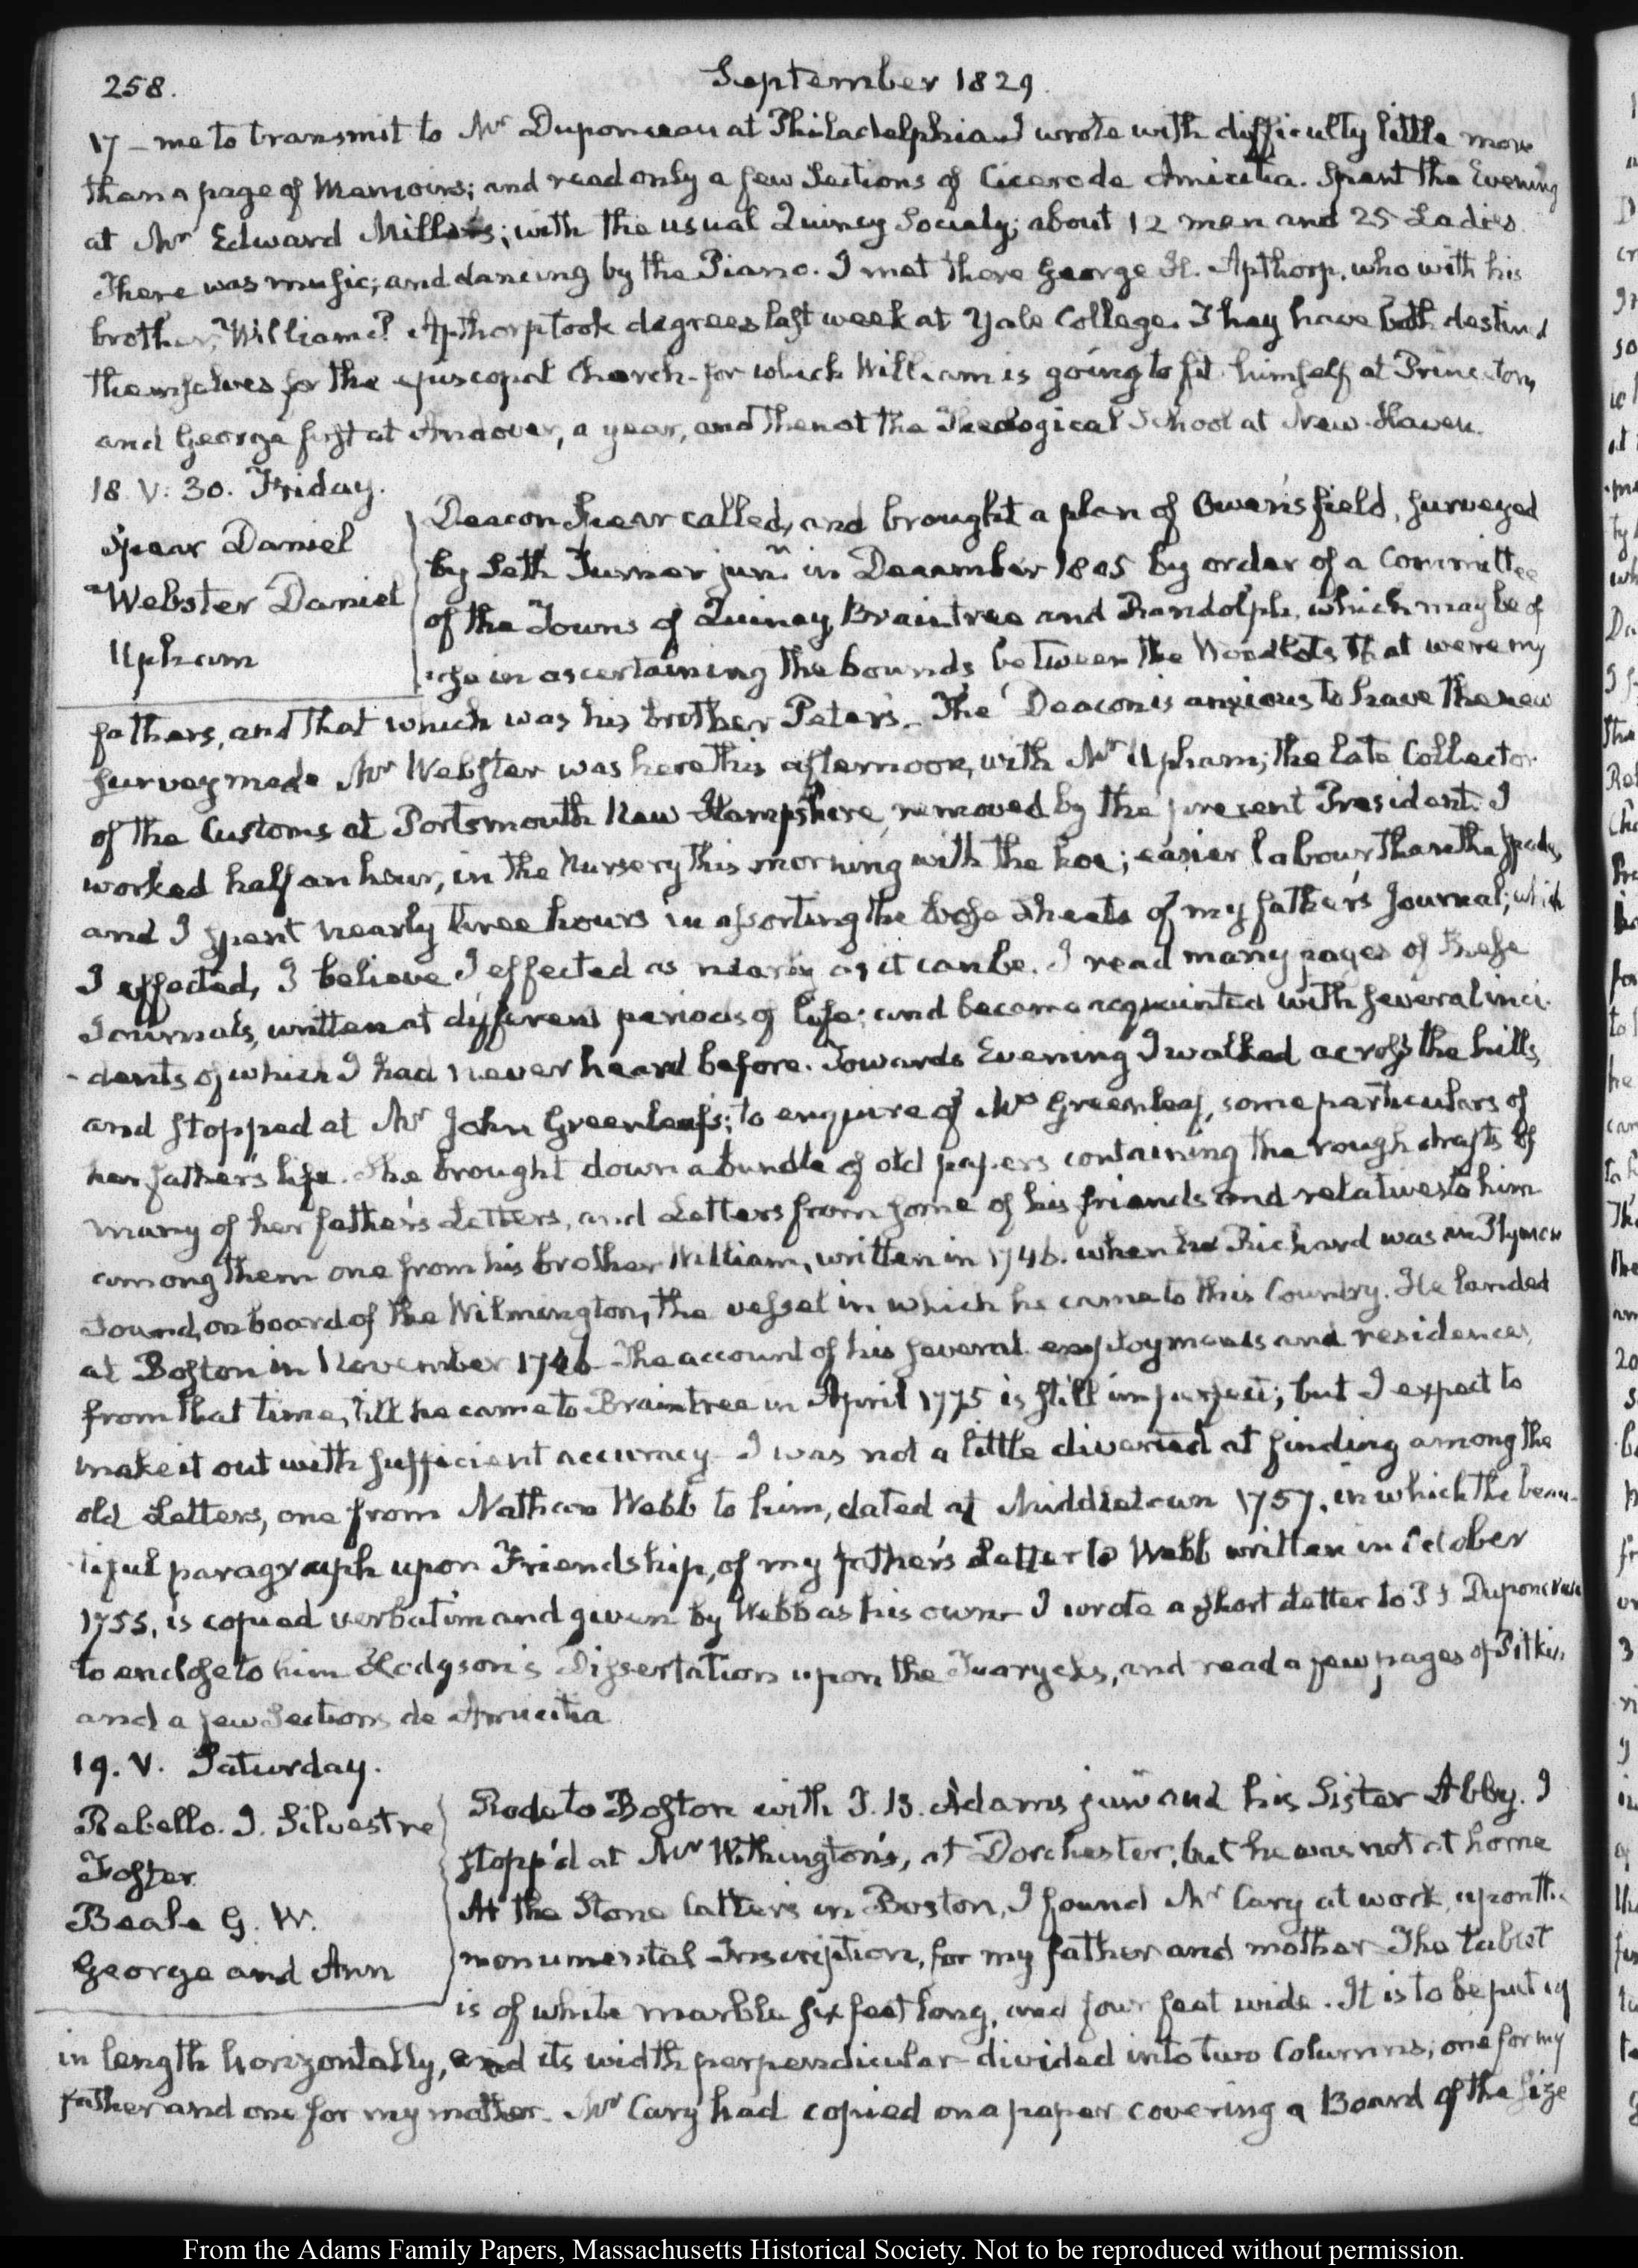 258.
September 1829.
17 - me to transmit to Mr Duponceau at Philadelphia I wrote with difficulty little more
than a page of Memoirs; and read only a few Sections of Cicero de Amicitia. Spent the Evening
at Mr Edward Miller's; with the usual Quincy Society; about 12 men and 25 Ladies.
There was music; and dancing by the Piano. I met there George H. Apthorp, who with his
brother, William P. Apthorp took degrees last week at Yale College. They have both destined
themselves for the episcopal Church - for which William is going to fit himself at Princeton,
and George first at Andover, a year, and then at the Theological School at New-Haven.
18. V: 30. Friday.
Spear Daniel
Webster Daniel
Upham
Deacon Spear called, and brought a plan of Owen's field, surveyed
by Seth Turner junr. in December 1805 by order of a Committee
of the Towns of Quincy, Braintree and Randolph, which may be of
use in ascertaining the bounds between the Woodlots that were my
fathers, and that which was his brother Peter's. The Deacon is anxious to have the new
survey made. Mr Webster was here this afternoon, with Mr Upham; the late Collector
of the Customs at Portsmouth New-Hampshire, removed by the present President. I
worked half an hour, in the Nursery this morning with the hoe; easier labour than the spade,
and I spent nearly three hours in assorting the loose sheets of my father's Journal; which
I effected, I believe I effected as nearly as it can be. I read many pages of these
Journals, written at different periods of life; and became acquainted with several inci-
-dents of which I had never heard before. Towards Evening I walked across the hills,
and stopped at Mr John Greenleaf's; to enquire of Mrs Greenleaf, some particulars of
her father's life. She brought down a bundle of old papers containing the rough drafts of
many of her father's Letters, and Letters from some of his friends and relatives to him
among them one from his brother William, written in 1746. when Richard was in Plymouth
Sound, on board of the Wilmington, the vessel in which he came to this Country. He landed
at Boston in November 1746. The account of his several employments and residences,
from that time, till he came to Braintree in April 1775 is still imperfect; but I expect to
make it out with sufficient accuracy. I was not a little diverted at finding among the
old Letters, one from Nathan Webb to him, dated at Middletown 1757. in which the beau-
-tiful paragraph upon Friendship, of my father's Letter to Webb written in October
1755, is copied verbatim and given by Webb as his own. I wrote a short Letter to P. S. Duponceau
to enclose to him Hodgson's Dissertation upon the Tuarycks, and read a few pages of Pitkin,
and a few Sections de Amicitia.
19. V. Saturday.
Rebello. J. Silvestre
Foster
Beale G. W.
George and Ann
Rode to Boston with J. B. Adams junr and his Sister Abby. I
stopp'd at Mr Withington's, at Dorchester, but he was not at home
At the Stone Cutters in Boston, I found Mr Cary at work, upon the
monumental Inscription, for my father and mother. The tablet
is of white marble six feet long, and four feet wide. It is to be put up
in length horizontally, and its width perpendicular - divided into two Columns; one for my
father and one for my mother. Mr Cary had copied on a paper covering a Board of the size
From the Adams Family Papers, Massachusetts Historical Society. Not to be reproduced without permission.